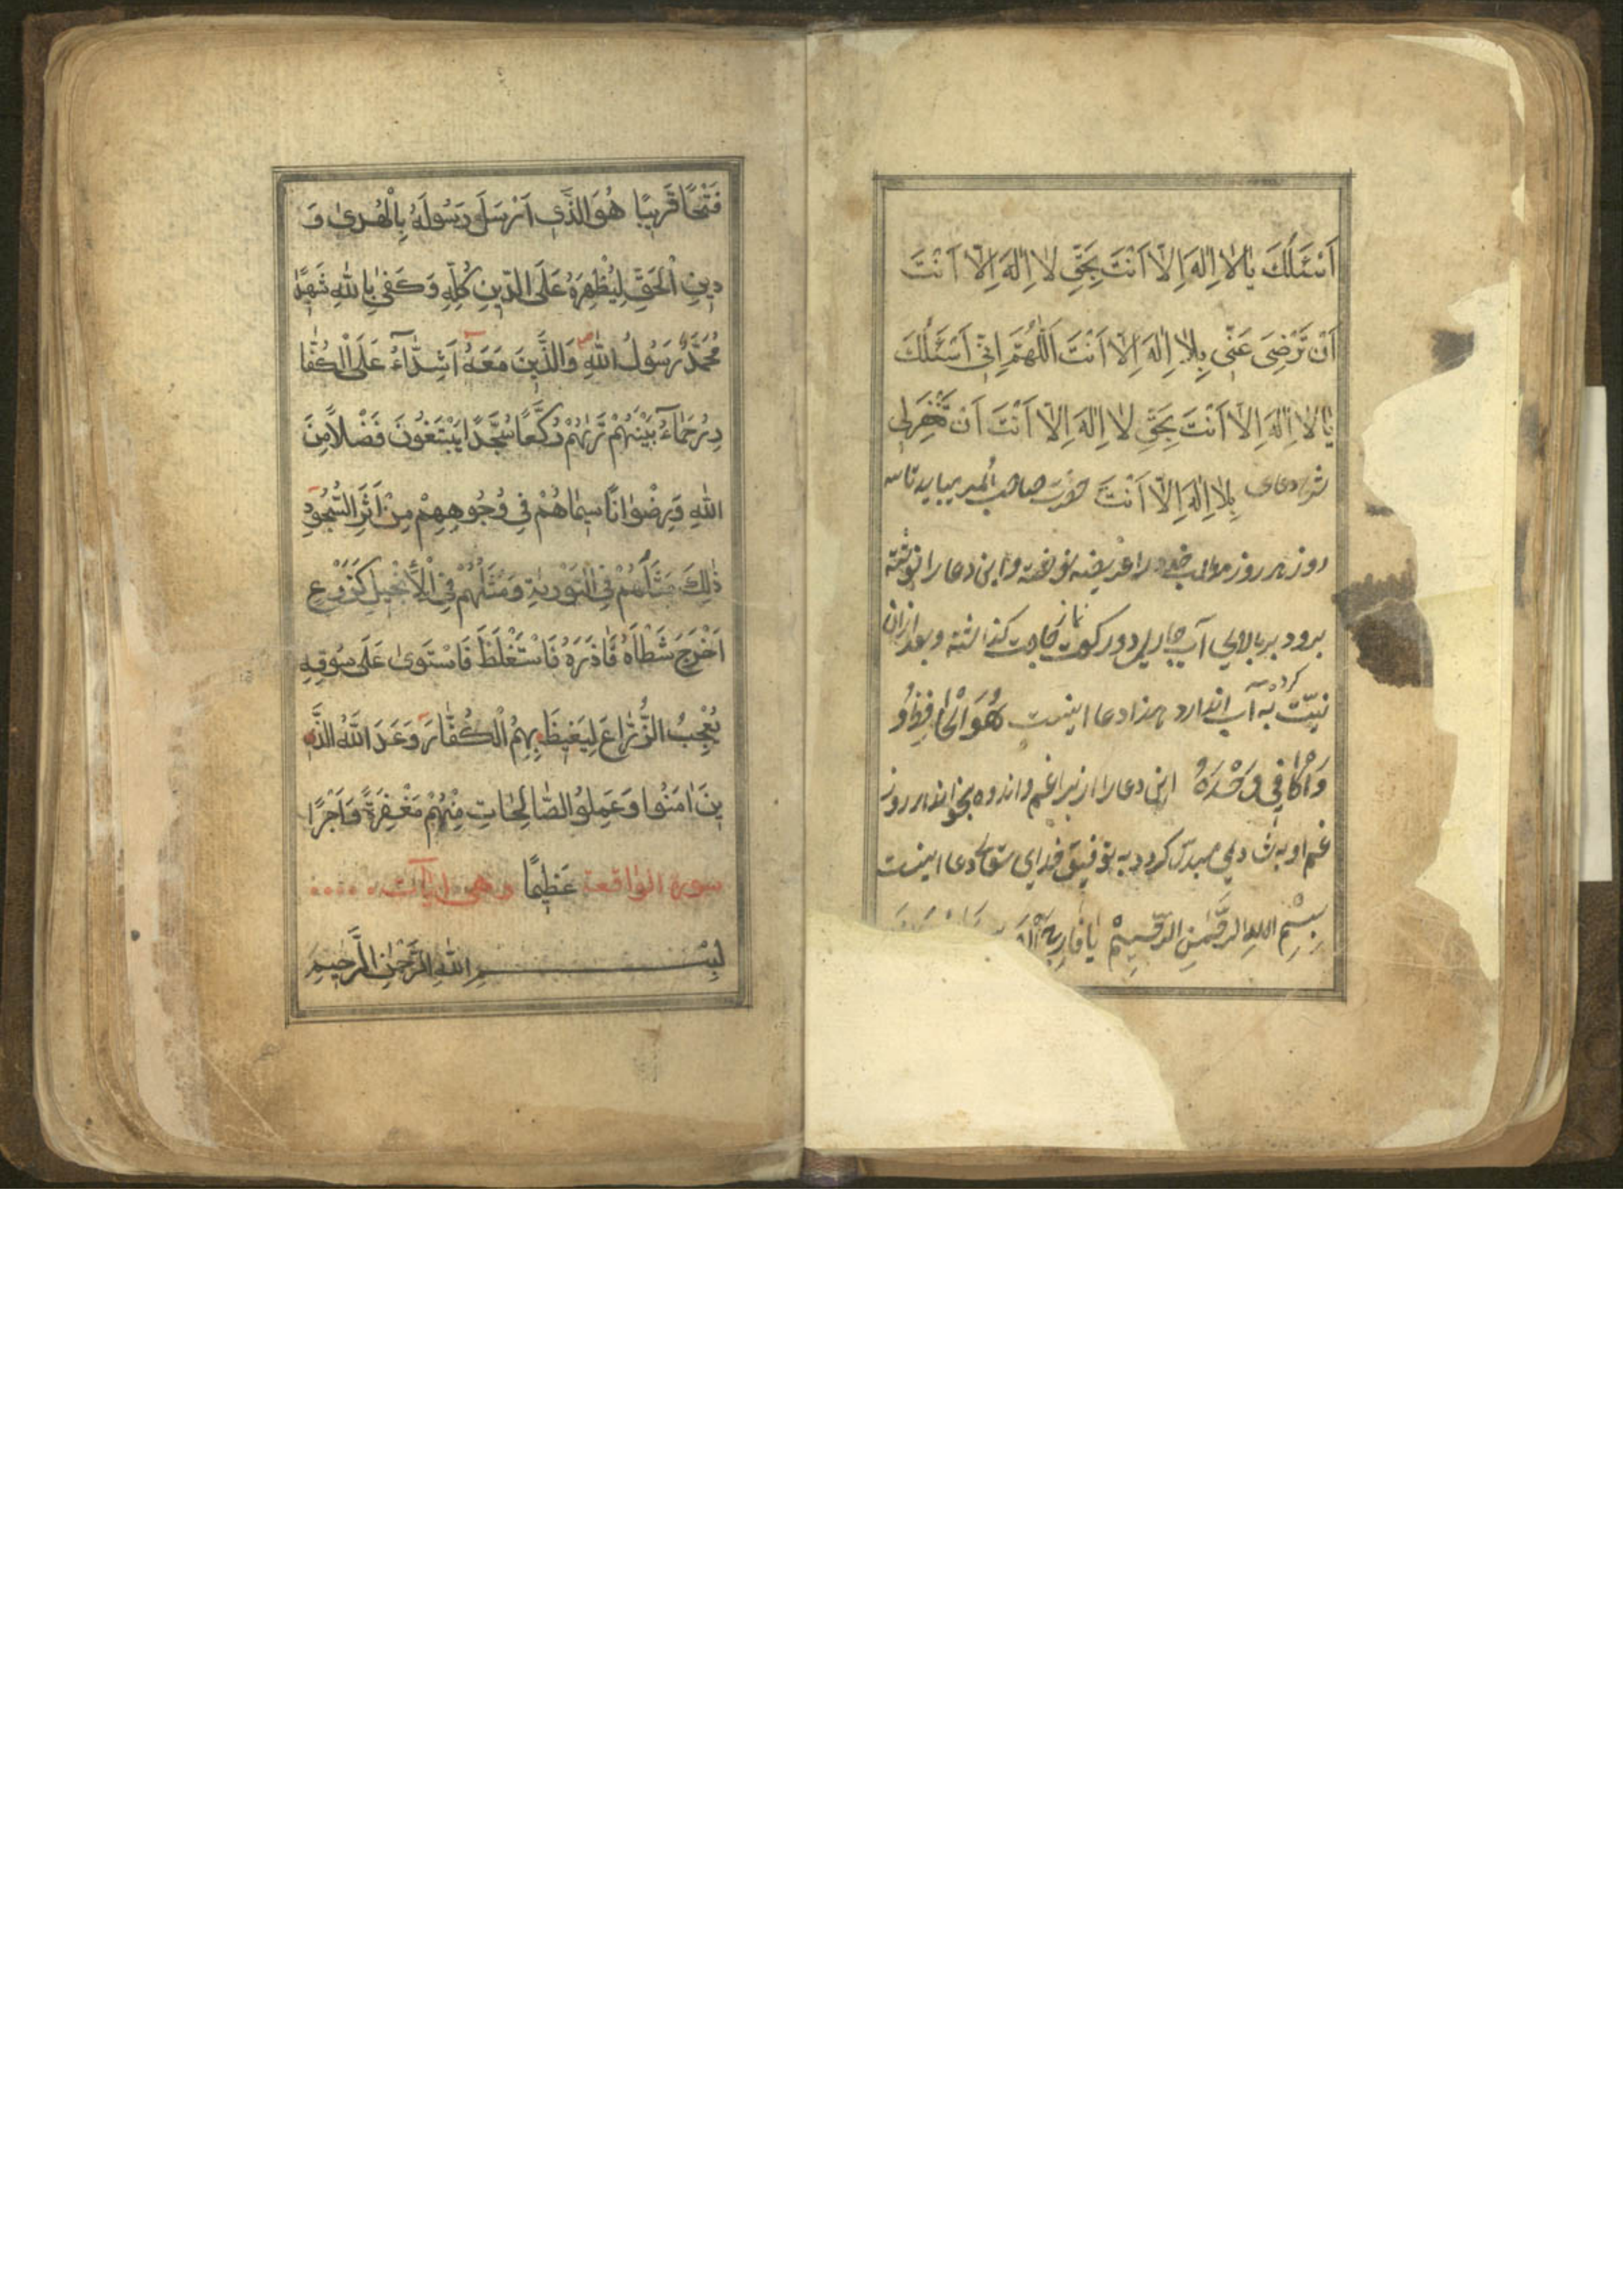 اَسْئَلُكَ يٰا لاٰ اِلٰهَ اِلاّٰ اَنْتَ بِحَقِّ لاٰ اِلٰهَ اِلاّٰ اَنْتَ
اَنْ تَرْضِىَ عَنّٖى بِلاٰ اِلٰهَ اِلاّٰ اَنْتَ اَللّٰهُمَّ اِنّٖى اَسْئَلُكَ
يٰا لاٰ اِلٰهَ اِلاّٰ اَنْتَ بِحَقِّ لاٰ اِلٰهَ اِلاّٰ اَنْتَ اَنْ تَغْفِرَلٖى
بِلاٰ اِلٰهَ اِلاّٰ اَنْتَ حضرت صاحب
روز هر روز مطالب خود را عريضه نوشته و اين دعا را نوشته
برود بر بالاى آب جارى دو ركعت نماز حاجت كذاشته و بعد ازان
نيّت كرده به آب اندازد هذا دعا اينست هُوَ الْحٰافِظُ وُ
وَالْكٰافٖى وَحْدَهُ اين دعا را از براى غم و اندوه بخواند هر روز
غم او به شادى مبدّل كردد به توفيق خداى تعالى دعا اينست
بِسْمِ اللهِ الرَّحْمٰنِ الرَّحٖيمْ يٰا فٰارِجَ
فَتْحًا قَرٖيبًا هُوَ الَّذٖى اَرْسَلَ رَسُولَهُ بِالْهُدىٰ وَ
دٖينِ الْحَقِّ لِيُظْهِرَهُ عَلَى الدّٖينِ كُلِّهٖ وَكَفىٰ بِاللّٰهِ شَهٖيدًا
مُحَمَّدٌ رَسُولُ اللّٰهِ وَالَّذٖينَ مَعَهُ اَشِدّٰآءُ عَلَى الْكُفّٰا
رِ رُحَمٰآءُ بَيْنَهُمْ تَرٰيهُمْ رُكَّعًا سُجَّدًا يَبْتَغُونَ فَضْلاً مِنَ
اللّٰهِ وَرِضْوٰانًا سٖيمٰاهُمْ فٖى وُجُوهِهِمْ مِنْ اَثَرِ السُّجُودِ
ذٰلِكَ مَثَلُهُمْ فِى التَّوْرٰيةِ وَمَثَلُهُمْ فِى الْأِنْجٖيلِ كَزَرْعٍ
اَخْرَجَ شَطْأَهُ فَاٰزَرَهُ فَاسْتَغْلَظَ فَاسْتَوىٰ عَلىٰ سُوقِهٖ
يُعْجِبُ الزُّرّٰاعَ لِيَغٖيظَ بِهِمُ الْكُفّٰارَ وَعَدَ اللّٰهُ الَّذٖ
ينَ اٰمَنُوا وَعَمِلُوا الصّٰالِحٰاتِ مِنْهُمْ مَغْفِرَةً وَاَجْرًا
سورة الواقعة عَظٖيمًا وهى آيات
بِسْمِ اللّٰهِ الرَّحْمٰنِ الرَّحٖيمِ